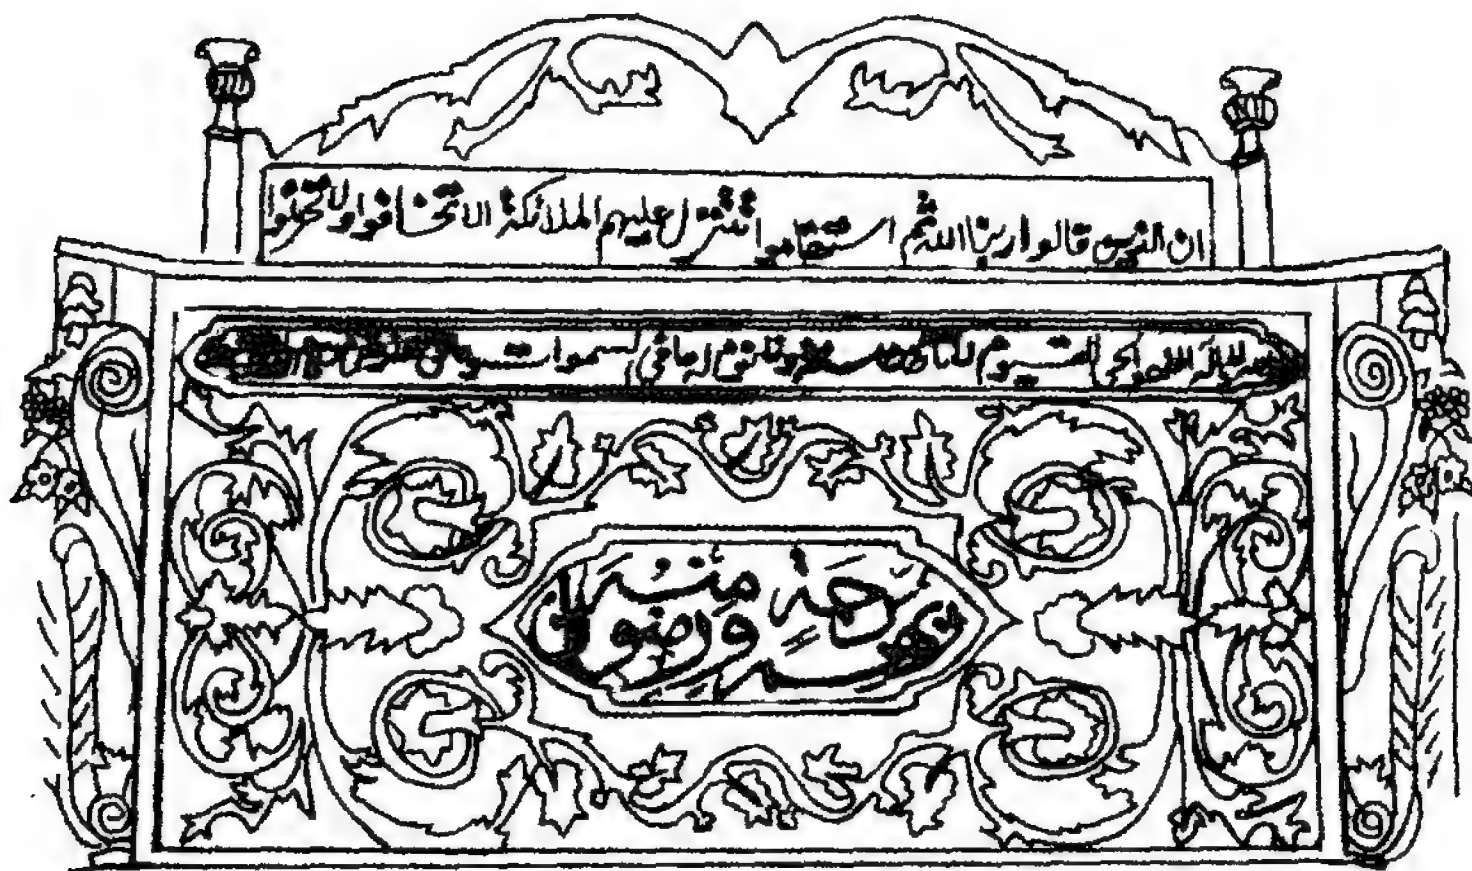 ان الذين قالوا ربنا الله ثم استقاموا تتنزل عليهم الملائكة الا تخافوا ولا تحزنوا
الله لا اله الا هو الحي القيوم لا تأخذه سنة ولا نوم له ما في السموات وما في
برحمة منه ورضوان